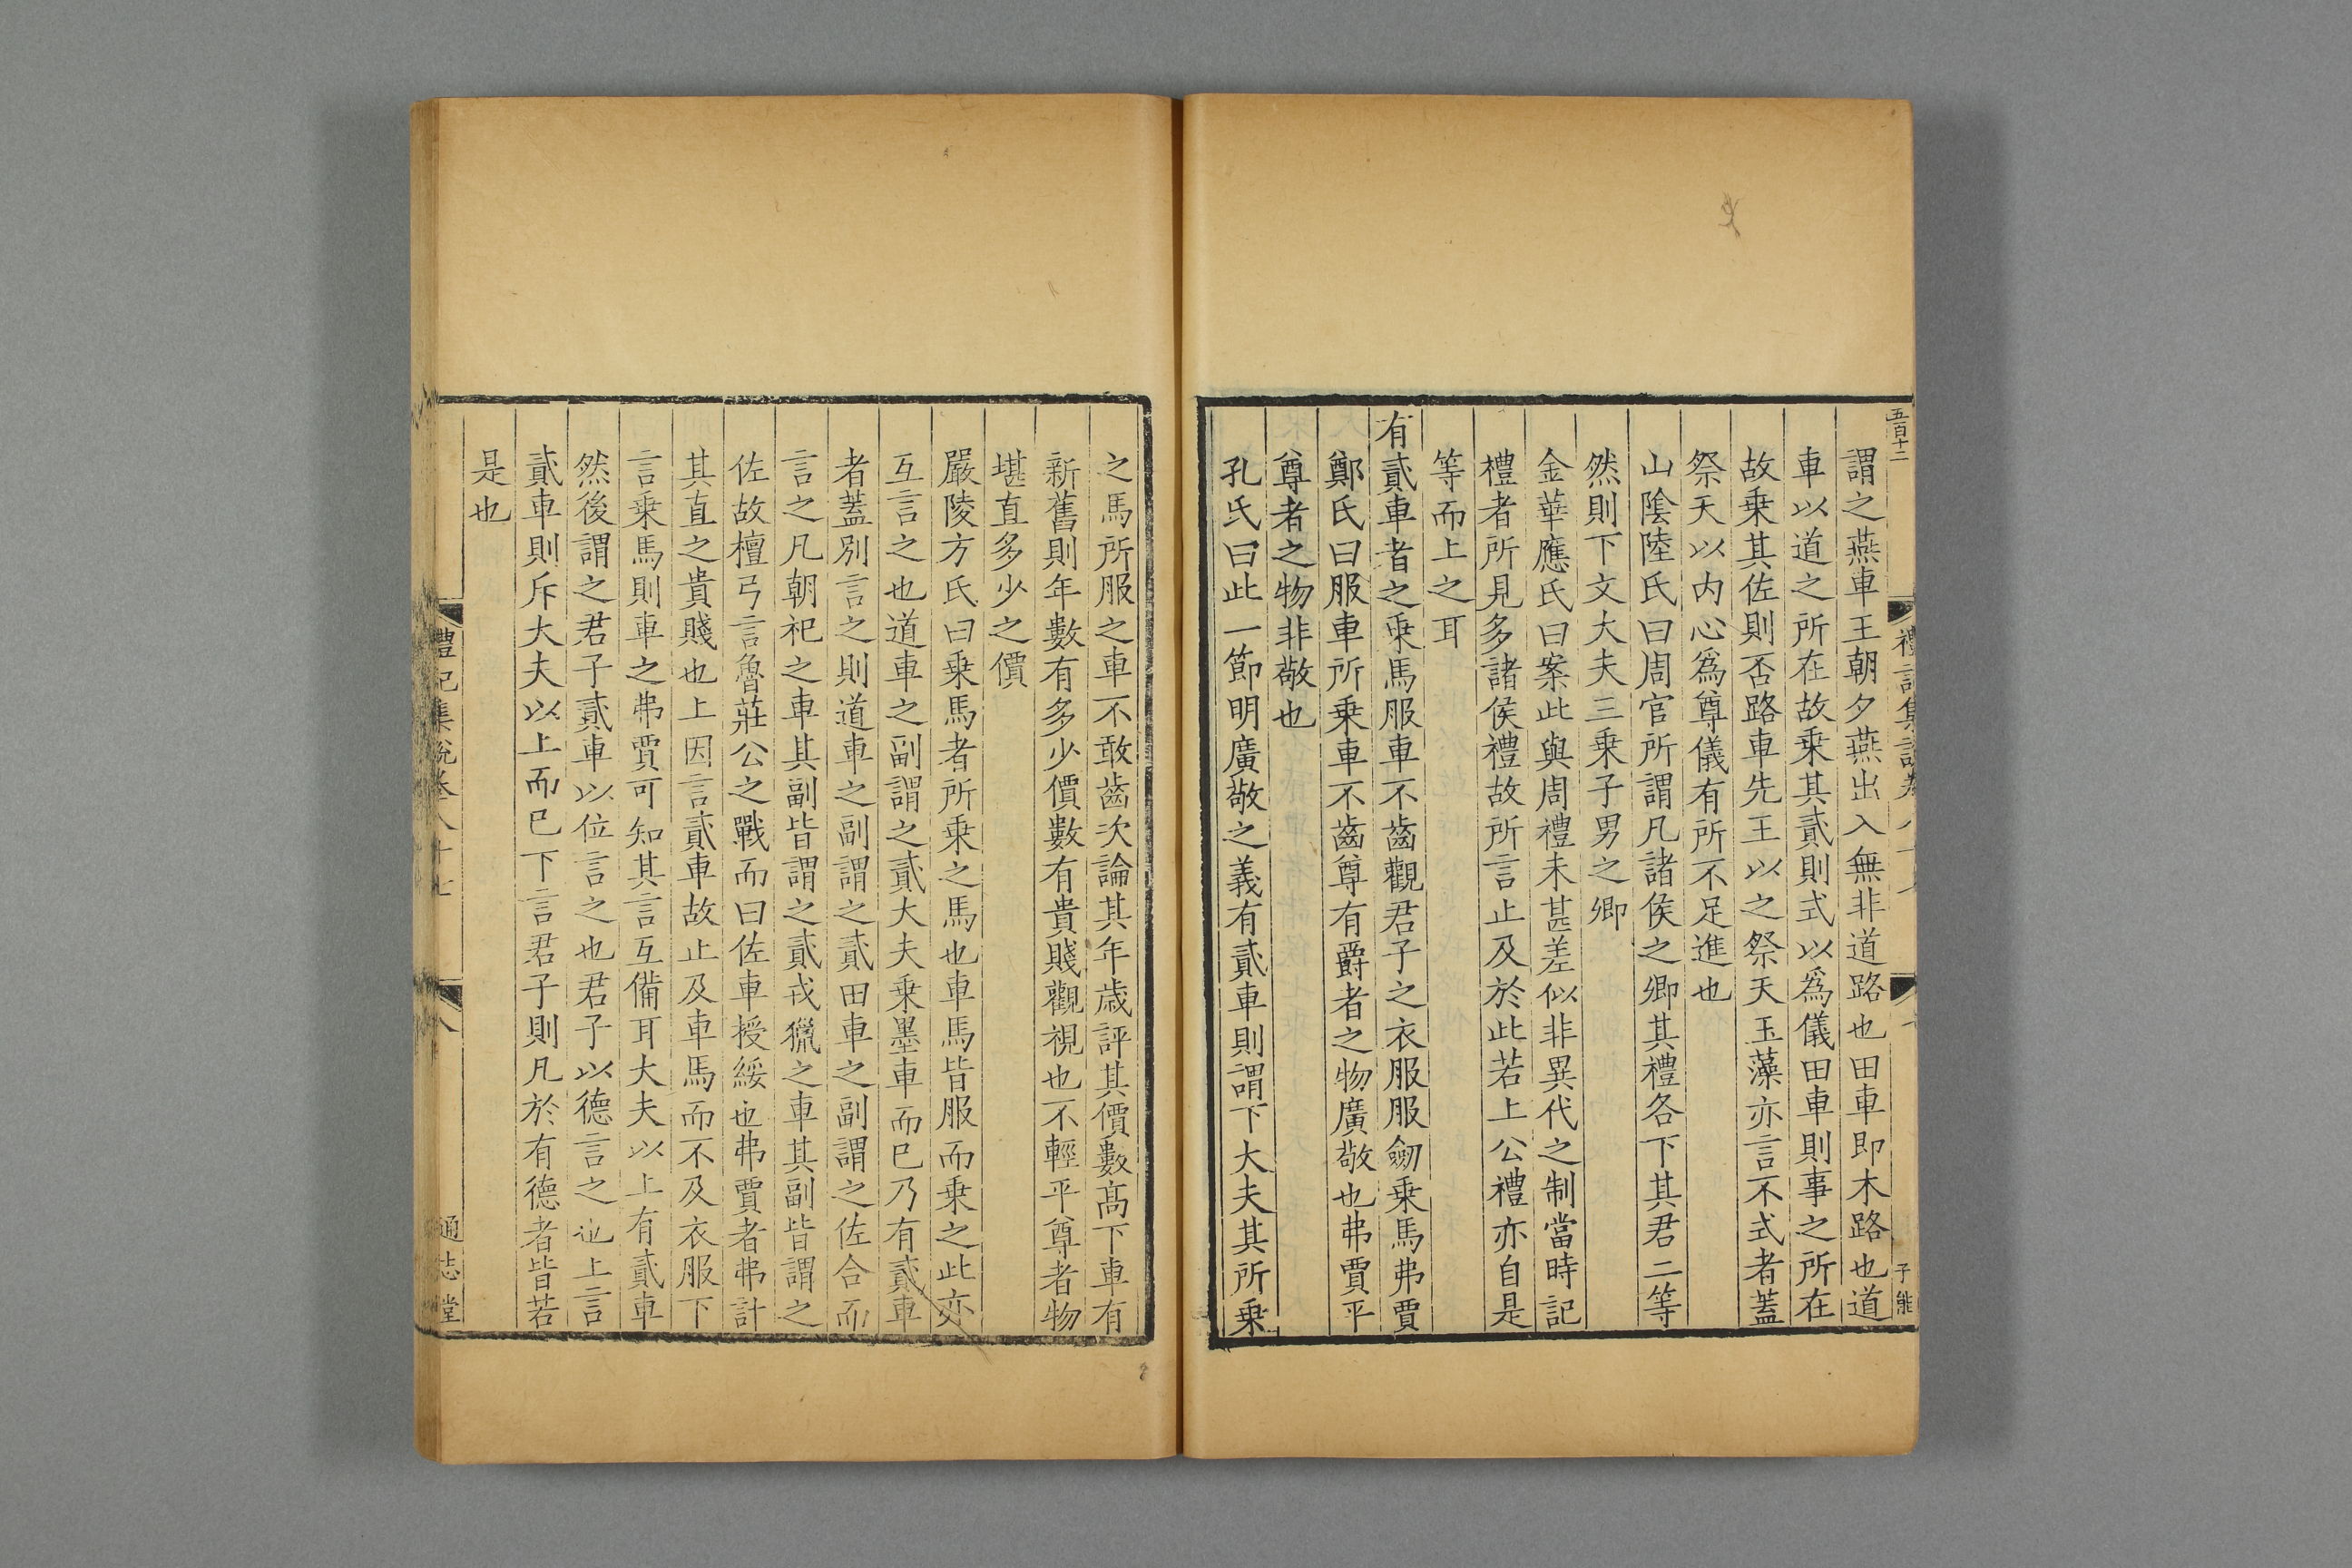 五百十二
子能
謂之燕車王朝夕燕出入無非道路也田車即木路也道
車以道之所在故乗其貳則式以爲儀田車則事之所在
故乗其佐則否路車先王以之祭天玉藻亦言不式者蓋
祭天以内心爲尊儀有所不足進也
山陰陸氏曰周官所謂凡諸侯之卿其禮各下其君二等
然則下文大夫三乗子男之卿
金華應氏曰案此與周禮未甚差似非異代之制當時記
禮者所見多諸侯禮故所言止及於此若上公禮亦自是
等而上之耳
有貳車者之乗馬服車不齒觀君子之衣服服劒乗馬弗賈
鄭氏曰服車所乗車不齒尊有爵者之物廣敬也弗賈平
尊者之物非敬也
孔氏曰此一節明廣敬之義有貳車則謂下大夫其所乗
之馬所服之車不敢齒次論其年歳評其價數髙下車有
新舊則年數有多少價數有貴賤觀視也不輕平尊者物
堪直多少之價
嚴陵方氏曰乗馬者所乗之馬也車馬皆服而乗之此亦
互言之也道車之副謂之貳大夫乗墨車而已乃有貳車
者蓋别言之則道車之副謂之貳田車之副謂之佐合而
言之凡朝祀之車其副皆謂之貳戎獵之車其副皆謂之
佐故檀弓言魯莊公之戰而曰佐車授綏也弗賈者弗計
其直之貴賤也上因言貳車故止及車馬而不及衣服下
言乗馬則車之弗賈可知其言互備耳大夫以上有貳車
然後謂之君子貳車以位言之也君子以德言之也上言
貳車則斥大夫以上而已下言君子則凡於有德者皆若
是也
禮記集說卷八十七
八
通志堂